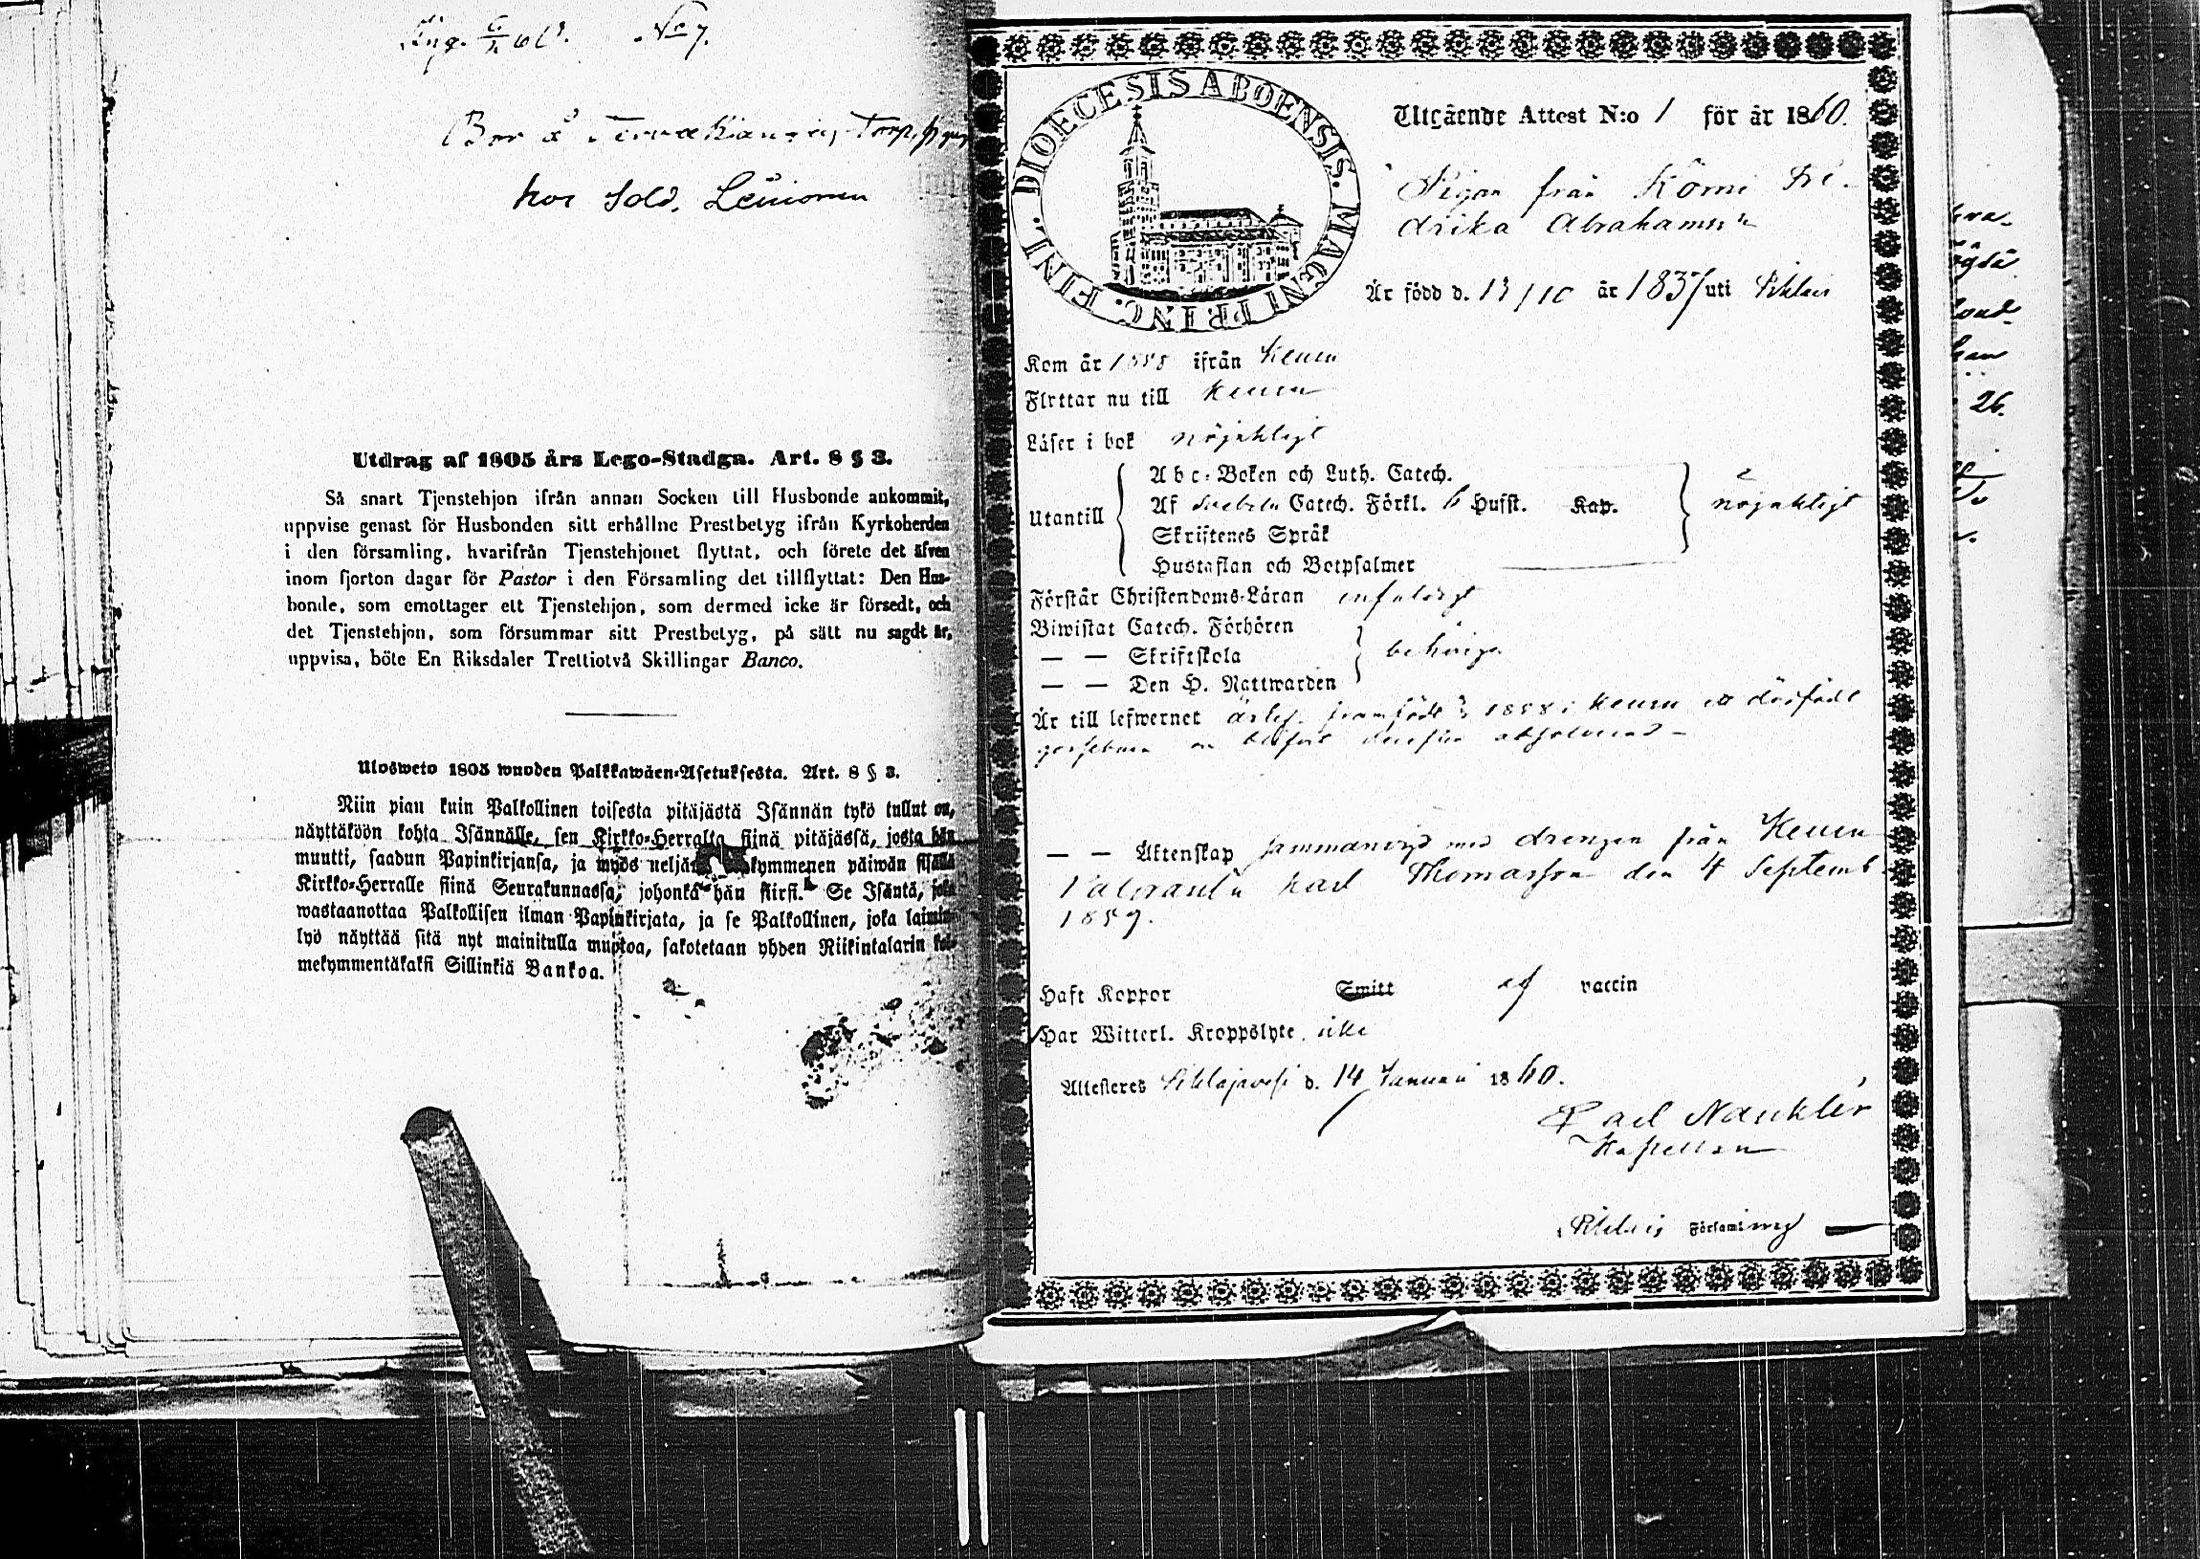 No 7.
Bor å Torp
hos Sold. Leinonen
Utdrag af 1805 års Lego-Stadga. Art. 8 § 3.
Så snart Tjenstehjon ifrån annan Socken till Husbonde ankommit,
uppvise genast för Husbonden sitt erhållne Prestbetyg ifrån Kyrkoherden
i den församling, hvarifrån Tjenstehjonet flyttat, och förete det äfven
inom fjorton dagar för Pastor i den Församling det tillflyttat: Den Hus-
bonde, som emottager ett Tjenstehjon, som dermed icke är försedt, och
det Tjenstehjon, som försummar sitt Prestbetyg, på sätt nu sagdt är,
uppvisa, böte En Riksdaler Trettiotvå Skillingar Banco.
Ulosweto 1805 wuoden Palkkawäen-Asetuksesta. Art. 8 § 3.
Niin pian kuin Palkollinen toisesta pitäjästä Isännän tykö tullut on,
näyttäköön kohta Isännälle, sen Kirkko-Herralta siinä pitäjässä, josta hän
muutti, saadun Papinkirjansa, ja myös kymmenen päiwän sisällä
Kirkko-Herralle siinä Seurakunnassa, johonka hän siirsi. Se Isäntä, joka
wastaanottaa Palkollisen ilman Papinkirjata, ja se Palkollinen, joka laimin-
lyö näyttää sitä nyt mainitulla muotoa, sakotetaan yhden Riikintalarin kol-
mekymmentäkaksi Sillinkiä Bankoa.
DIOECESIS ABOENSIS. MAGNI PRINC. FINL.
Utgående Attest N:o 1 för år 1860.
Pigan från Kömi Fre-
drika Abrahamsdr
Är född d. 13/10 år 1837 uti Pihlais
Kom år 1858 ifrån Keuru
Flyttar nu till Keuru
Läser i bok nöjaktigt
Utantill
Abc-Boken och Luth. Catech.
Af Svebelii Catech. Förkl. 6 Hufst. Kap.
Skriftenes Språk
Hustaflan och Botpsalmer
nöjaktigt
Förstår Christendoms-Läran enfaldigt
Biwistat Catech. Förhören
— — Skriftskola
— — Den H. Nattwarden
behörigen
Är till lefwernet ärlig. framfödt 1858 i Keuru ett dödfödt
gossebarn absolverad
— — Äktenskap sammanvigd med drengen från Keuru
Karl Thomasson den 4 Septemb
1859.
Haft Koppor Smitt af vaccin
Har Witterl. Kroppslyte icke
Attesteras Pihlajavesi d. 14 Januari 1860.
Carl Nauklér
Kapellan
Pihlais Församling